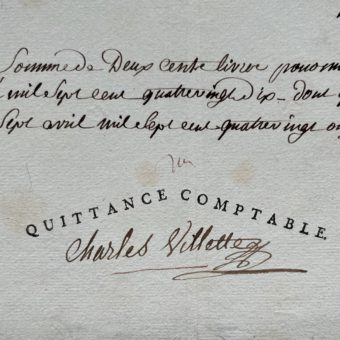 Somme de Deux cents livres pour
mil sept cent quatre vingt dix _ dont
Sept avril mil sept cent quatre vingt
QUITTANCE COMPTABLE.
Charles Villette